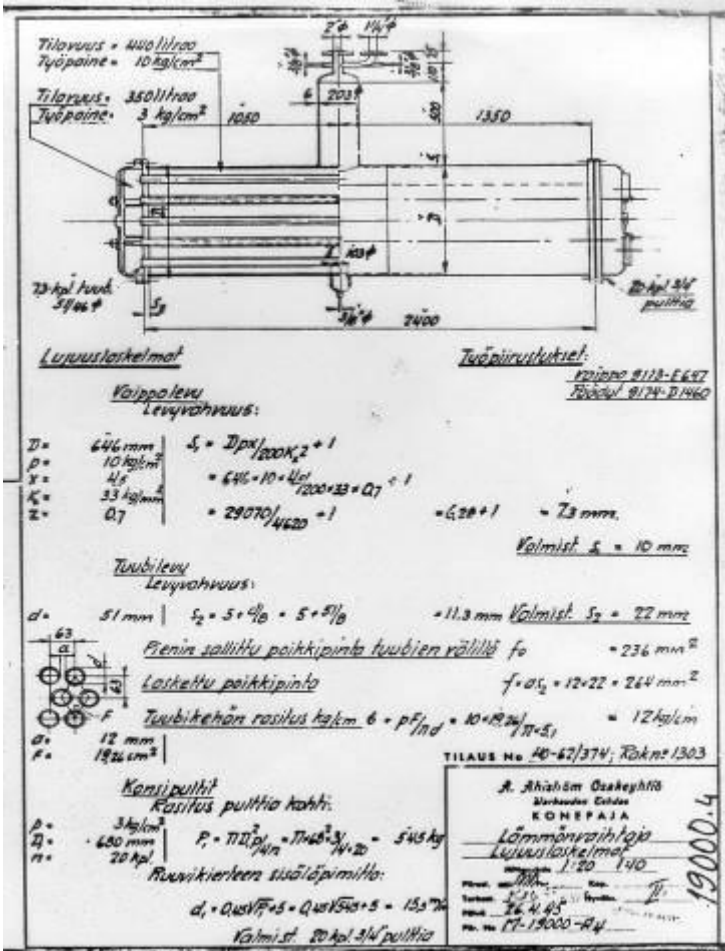 Tilavuus = 440 litraa
Työpaine = 10 kg/cm²
Tilavuus = 350 litraa
Työpaine = 3 kg/cm²
2"φ
1¼"φ
6
203φ
500
1050
1350
S₁
D
103φ
73 kpl tuub.
51/46 φ
S₂
3/8"φ
20 kpl 3/4"
pulttia
2400
Lujuuslaskelmat
Työpiirustukset:
Vaippa 9173-E647
Päädyt 9174-D1460
Vaippalevy
Levyvahvuus:
D = 646 mm
S₁ = Dpx/200K₂z + 1
p = 10 kg/cm²
x = 4,5
= 646×10×4,5/200×33×0,7 + 1
K = 33 kg/mm²
z = 0,7
= 29070/4620 + 1
= 6,28 + 1 = 7,3 mm.
Valmist. S₁ = 10 mm
Tuubilevy
Levyvahvuus:
d = 51 mm
S₂ = 5 + d/8 = 5 + 51/8 = 11.3 mm Valmist. S₂ = 22 mm
63
a
d
63
F
Pienin sallittu poikkipinta tuubien välillä f₀ = 236 mm²
Laskettu poikkipinta f = aS₂ = 12×22 = 264 mm²
Tuubikehän rasitus kg/cm 6 = pF/πd = 10×19,26/π×5,1 = 12 kg/cm
a = 12 mm
F = 19,26 cm²
TILAUS No HO-62/374; Rak n:o 1303
Kansipultit
Rasitus pulttia kohti:
p = 3 kg/cm²
D₁ = 680 mm
P₁ = πD₁²p/4n = π×68²×3/4×20 = 545 kg
n = 20 kpl.
Ruuvikierteen sisäläpimitta:
d₁ = 0,45√P₁+5 = 0,45√545+5 = 15,5 m/m
Valmist. 20 kpl 3/4" pulttia
A. Ahlström Osakeyhtiö
Warkauden Tehdas
KONEPAJA
Lämmönvaihtaja
Lujuuslaskelmat
1:20 1:40
26.4.45
Piir. No M-19000-A4
19000.4